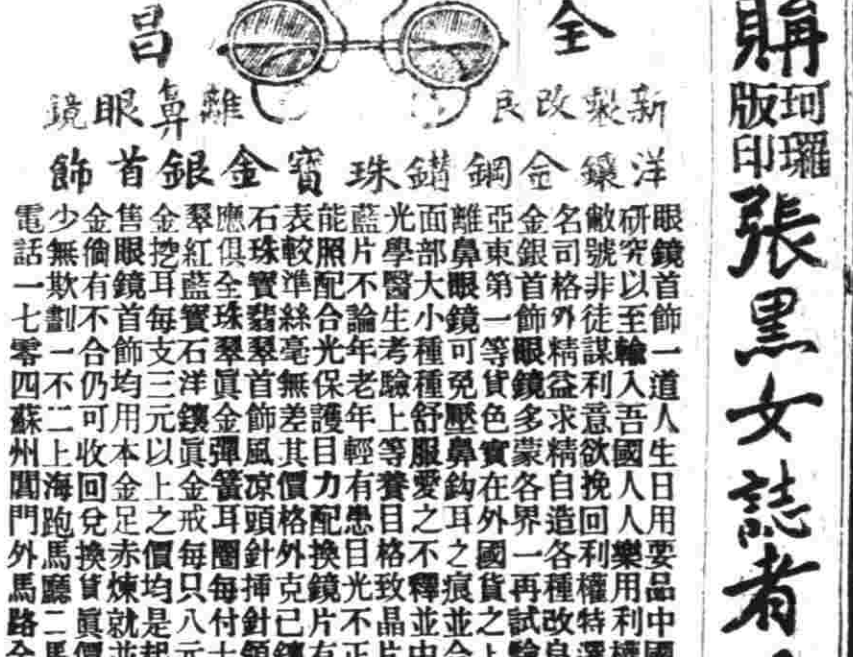 購
珂羅版印
張黑女誌者
全昌
新製改良
離鼻眼鏡
洋鑲金鋼鑽珠寶金銀首飾
眼鏡首飾一道人生日用要品中國
研究以至輸入吾國人人樂用利權
敝號非徒謀利意欲挽回利權特選
名司格外精益求精自造各種改良
金銀首飾眼鏡多蒙各界一再試驗
亞東第一等貨色實在外國貨之上
離鼻眼鏡可免壓鼻鈎耳之痕並合
面部大小種種舒服愛之不釋並由
光學醫生考驗上等養目格致晶片
藍片不論年老年輕有患目光不正
能照配合光保護目力配換鏡片有
表較準絲毫無差其價格外克己鑲
石珠寶翡翠首飾風凉頭針挿針領
應俱全珠翠眞金彈簧耳圈每付十
翠紅藍寶石洋鑲眞金戒每只八元
金挖耳每支三元以上之價均是起
售眼鏡首飾均用本金足赤煉就並
金倘有不合仍可收回兌換貨眞價
少無欺劃一不二上海跑馬廳二馬
電話一七零四蘇州閶門外馬路全